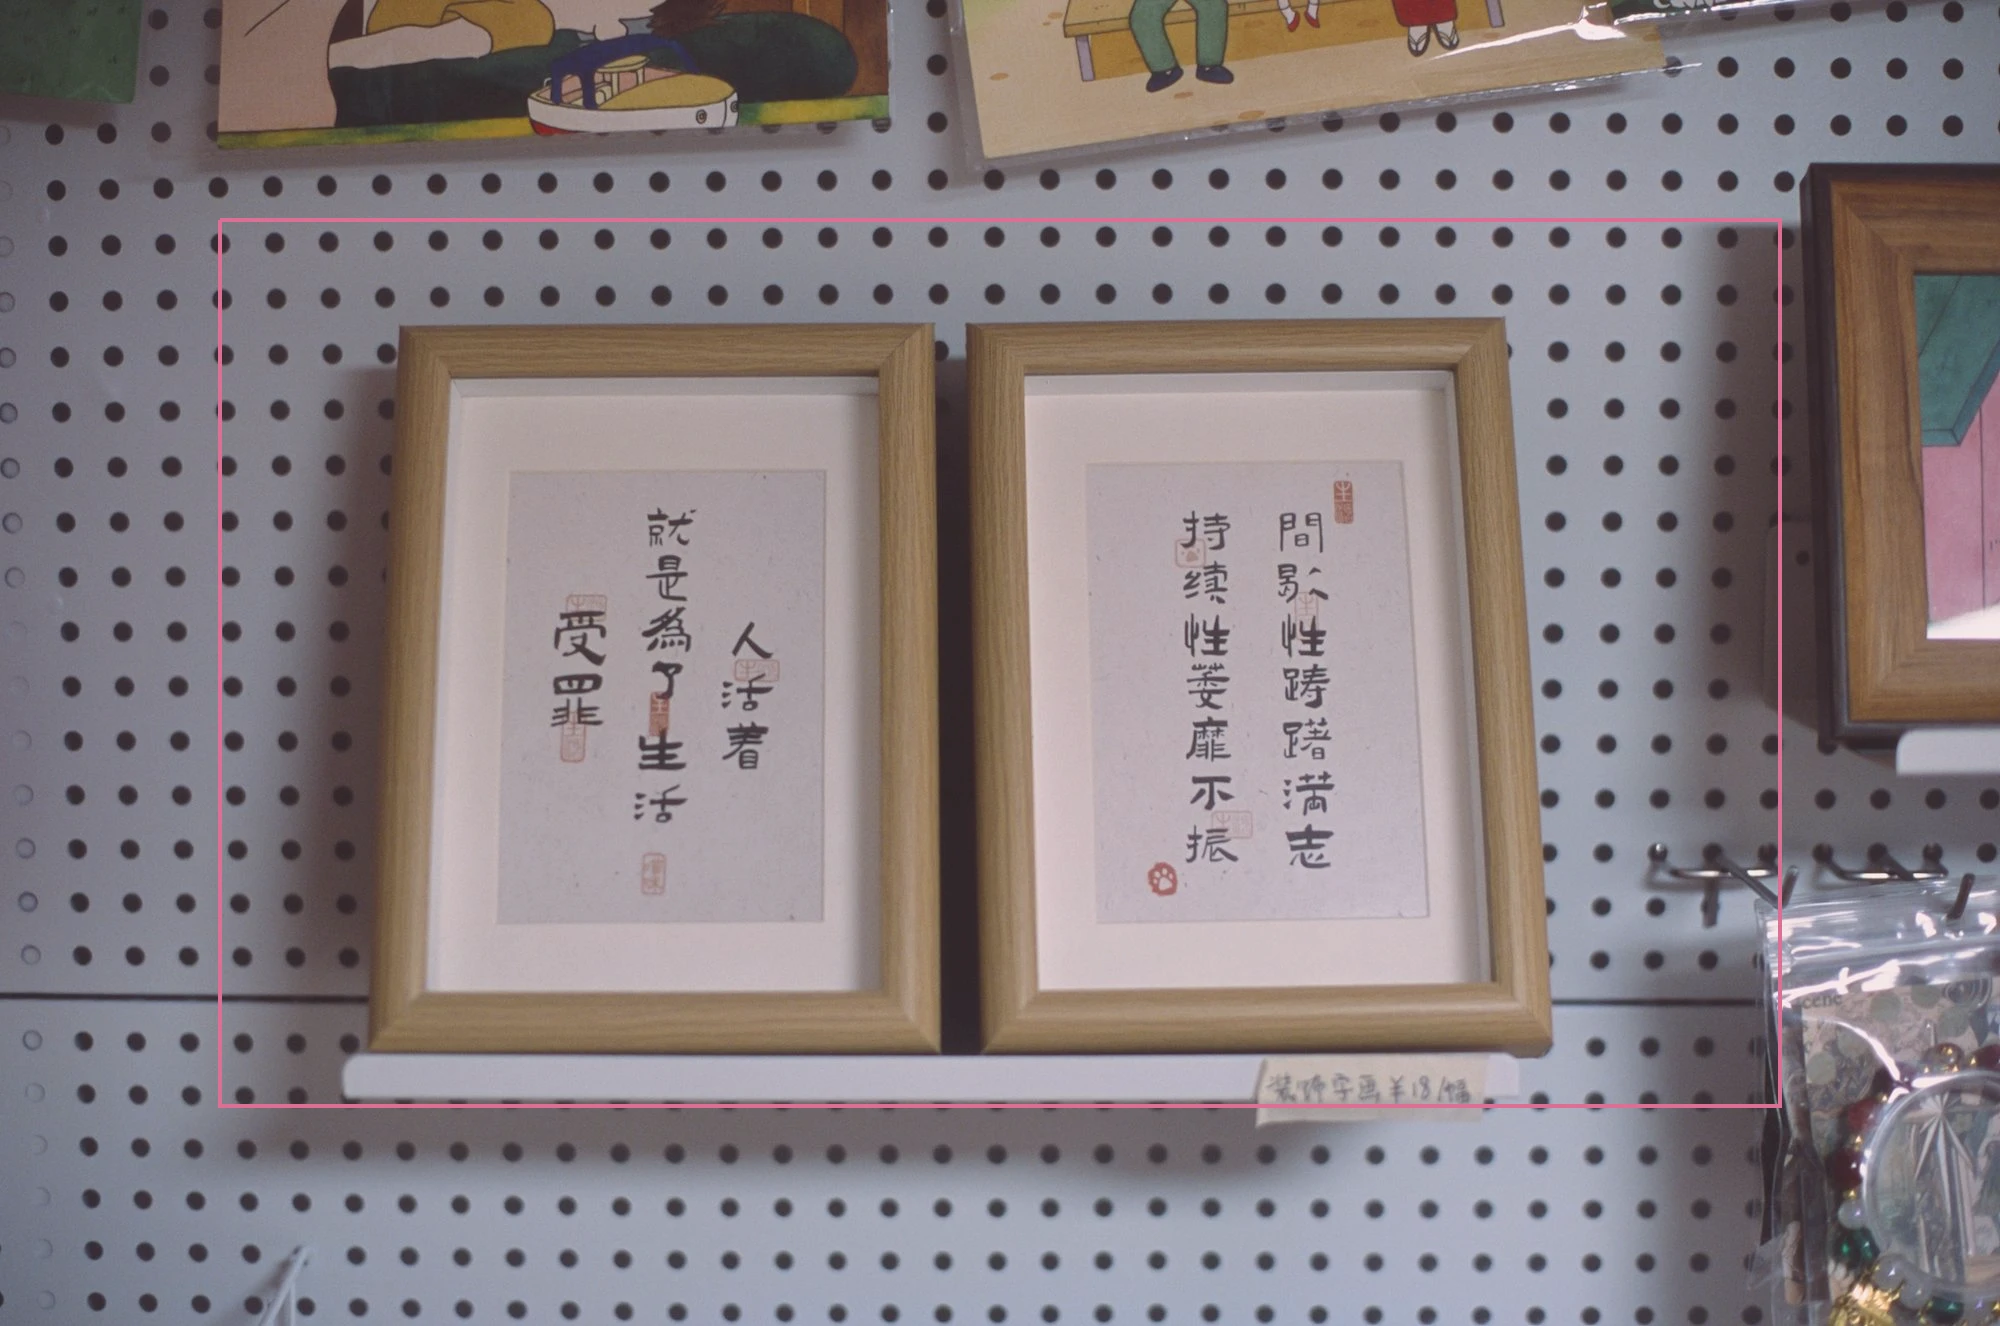 間歇性踌躇満志
持续性萎靡不振
人活着
就是為了生活
受罪
装饰字画¥18/幅
scene